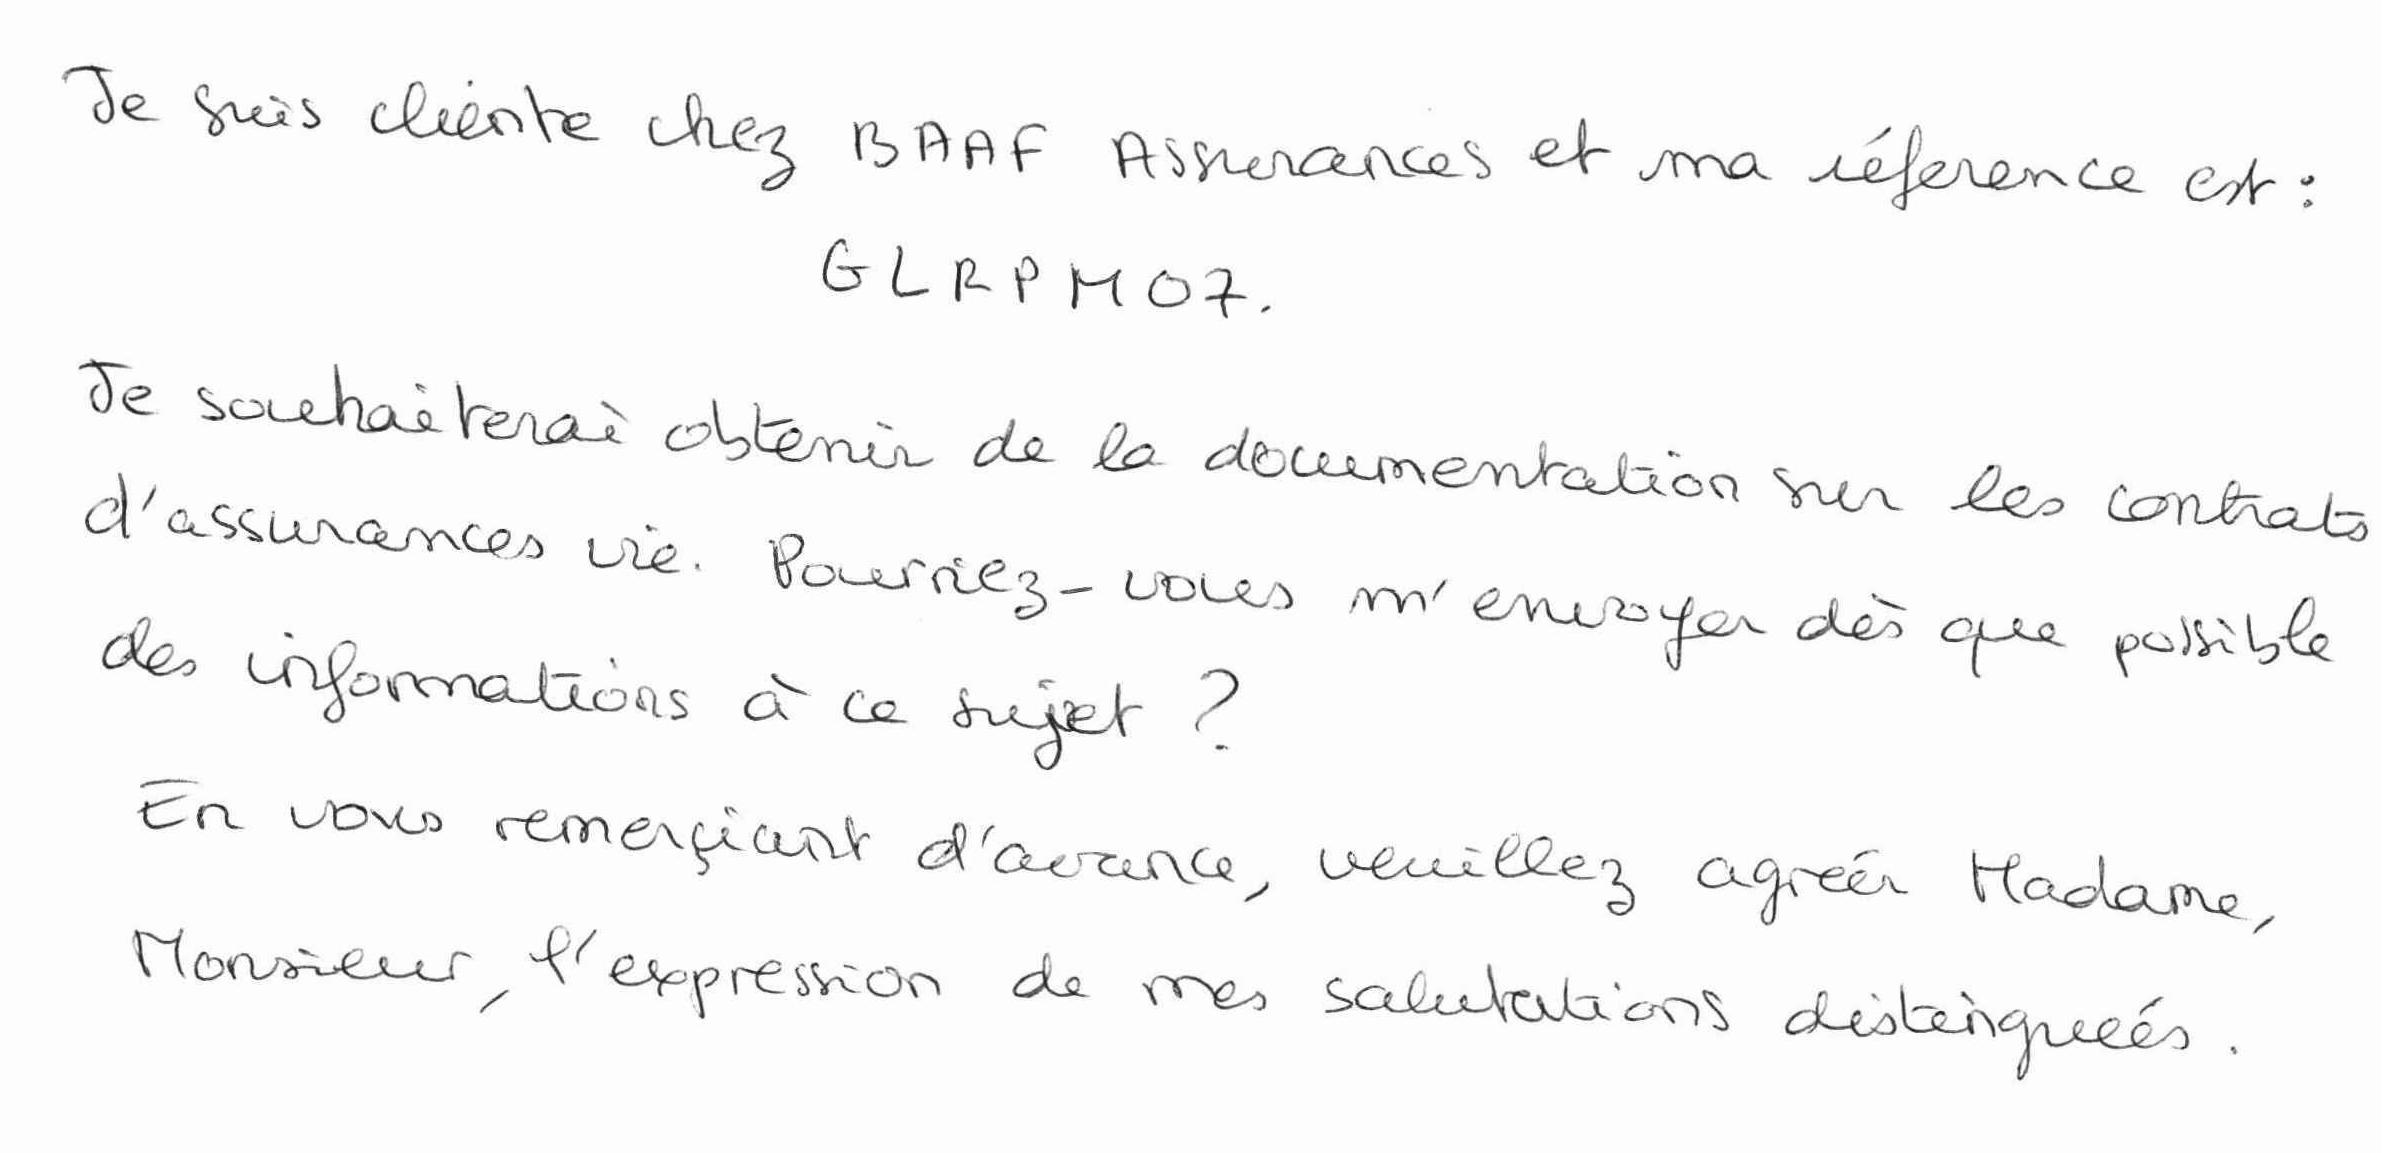 Je suis cliente chez BAAF Assurances et ma réference est :
GLRPM07.
Je souhaiterai obtenir de la documentation sur les contrats
d'assurances vie. Pourriez-vous m'envoyer dès que possible
des informations à ce sujet ?
En vous remerçiant d'avance, veuillez agréer Madame,
Monsieur, l'expression de mes salutations distinguées.